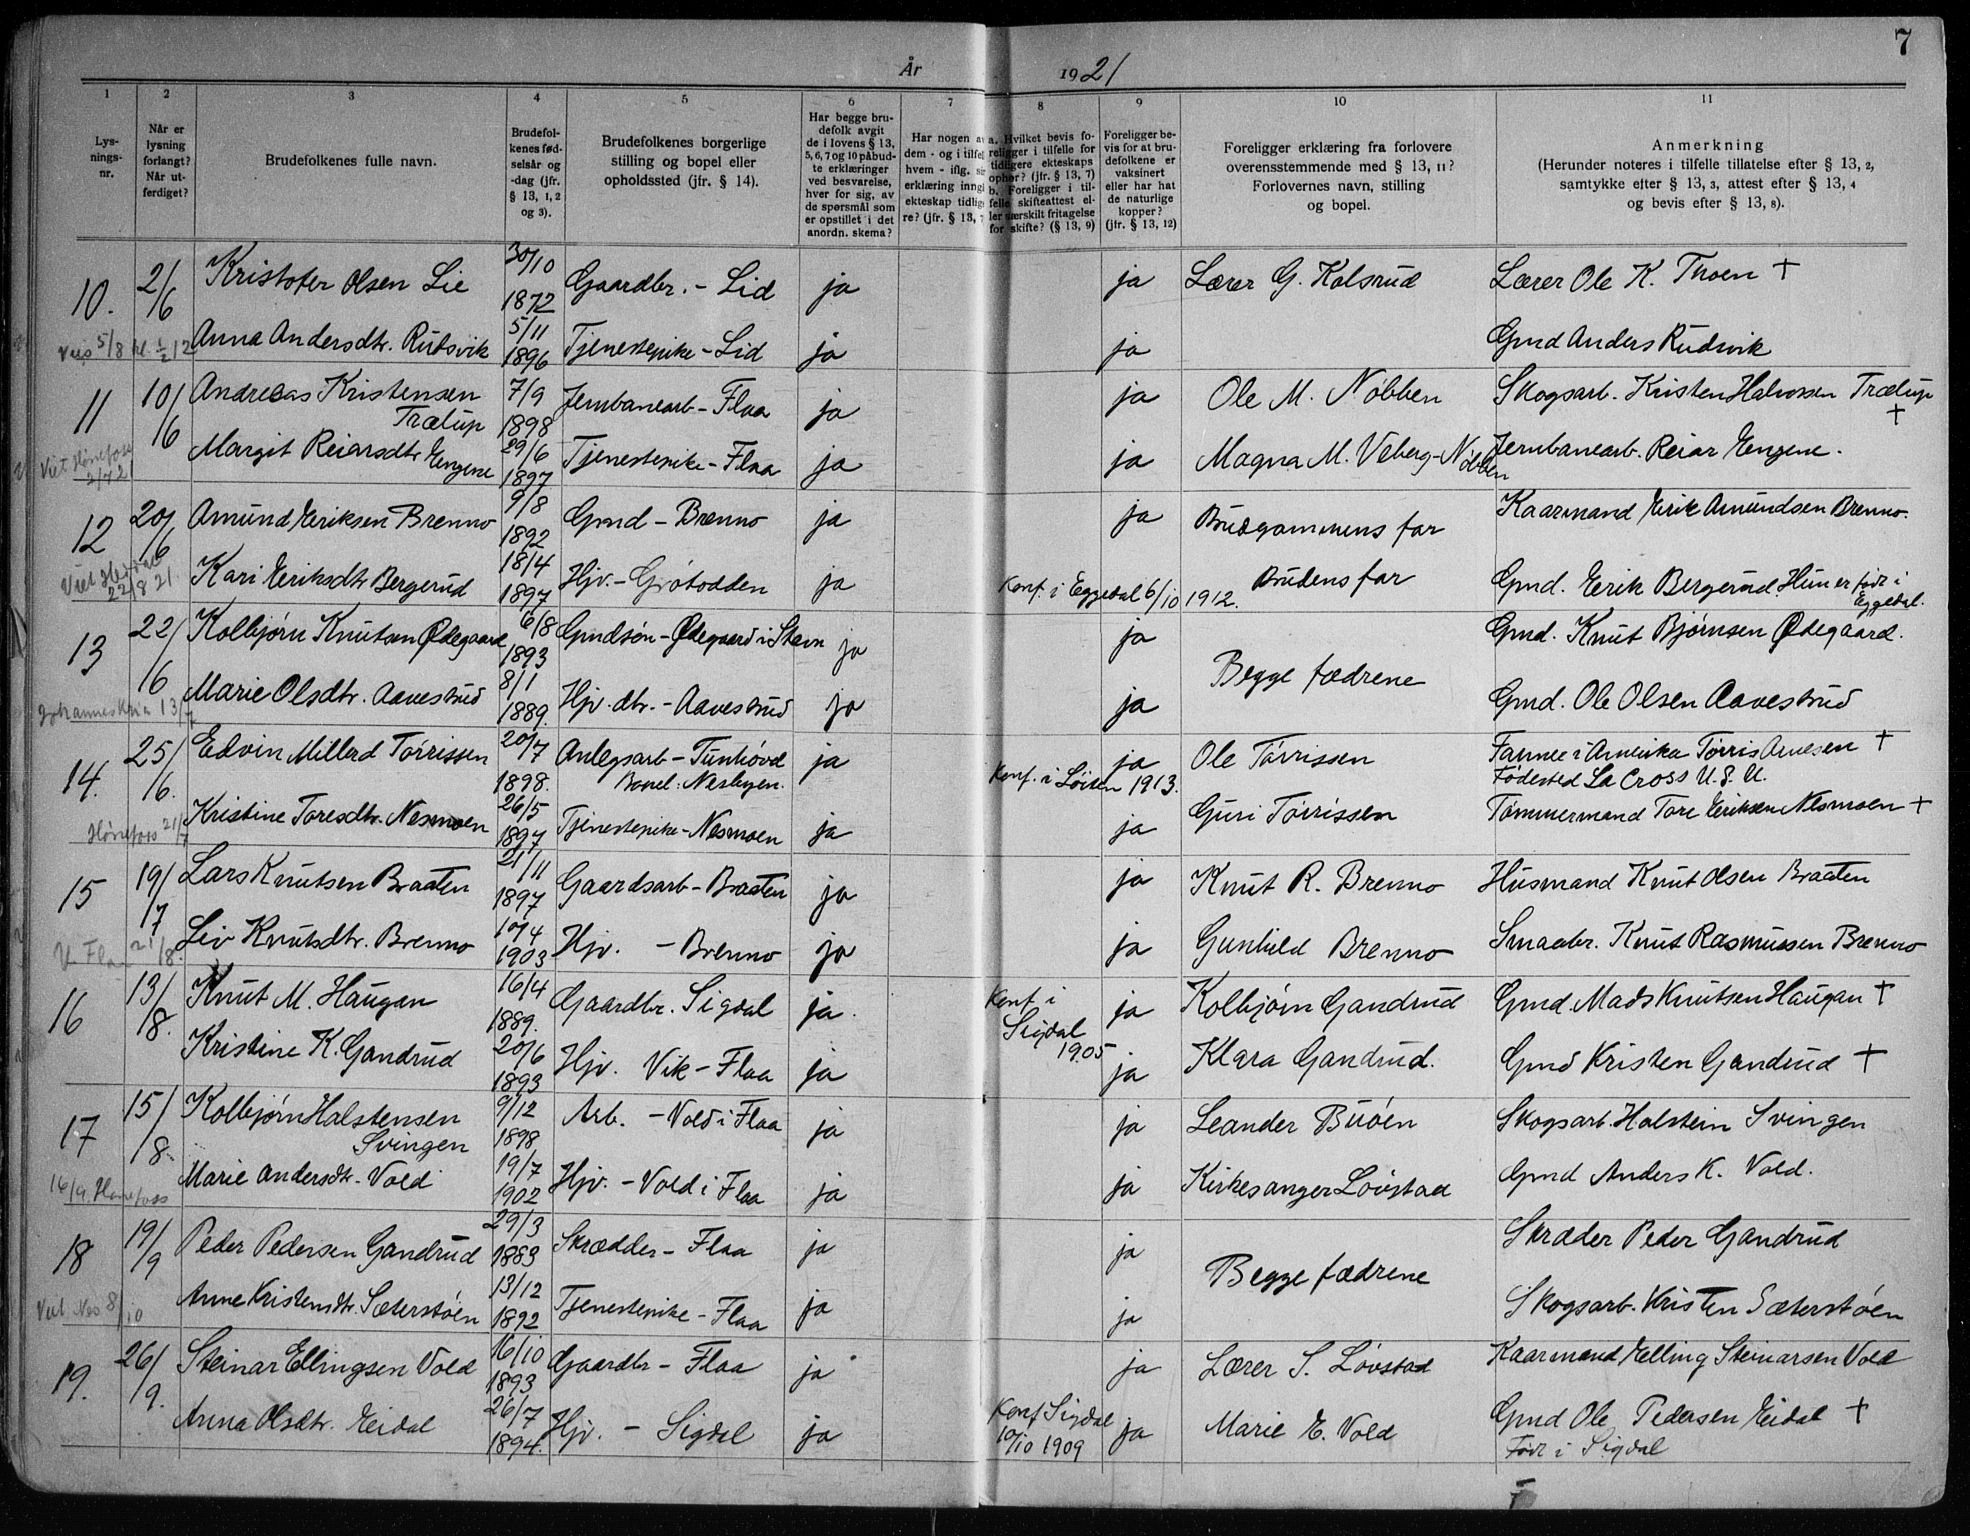 7
År 1921
1 2 3 4 5 6 7 8 9 10 11
Lysnings-nr.
Når er lysning forlangt? Når utferdiget?
Brudefolkenes fulle navn.
Brudefolkenes fødselsår og -dag (jfr. § 13, 1, 2 og 3).
Brudefolkenes borgerlige stilling og bopel eller opholdssted (jfr. § 14).
Har begge brudefolk avgit de i lovens § 13, 5, 6, 7 og 10 påbudte erklæringer ved besvarelse, hver for sig, av de spørsmål som er opstillet i det anordn. skema?
Har nogen av dem - og i tilfel hvem - iflg. si erklæring inngå ekteskap tidlige re? (jfr. § 13, 7
a. Hvilket bevis foreligger i tilfelle for tidligere ekteskaps ophør? (jfr. § 13, 7)
b. Foreligger i tilfelle skifteattest eller særskilt fritagelse for skifte? (§ 13, 9)
Foreligger bevis for at brudefolkene er vaksinert eller har hat de naturlige kopper? (jfr. § 13, 12)
Foreligger erklæring fra forlovere overensstemmende med § 13, 11? Forlovernes navn, stilling og bopel.
Anmerkning
(Herunder noteres i tilfelle tillatelse efter § 13, 2, samtykke efter § 13, 3, attest efter § 13, 4 og bevis efter § 13, 8).
10. 2/6 Kristofer Olsen Lie 30/10 1872 Gaardbr. - Lid ja ja Lærer G. Kolsrud Lærer Ole K. Thoen +
5/8 kl. ½12 Anna Andersdtr. Rudsvik 5/11 1896 Tjenestepike - Lid ja ja Gmd Anders Rudsvik
11 10/6 Andreas Kristensen Trætup 7/9 1898 Jernbanearb - Flaa ja ja Ole M. Nobben Skogsarb. Kristen Halvorsen Trætup +
Viet Hønefoss 2/7 21 Margit Reiarsdtr Engene 29/6 1897 Tjenestepike - Flaa ja ja Magna M. Veberg-Nobben Jernbanearb. Reiar Engene.
12 20/6 Amund Eriksen Brenno 9/8 1892 Gmd - Brenno ja ja Brudgommens far Kaarmand Erik Amundsen Brenno.
Viet 22/8 21 Kari Eriksdtr Bergerud 18/4 1897 Hjv. - Grøtodden ja Konf. i Eggedal 6/10 1912. Brudens far Gmd. Erik Bergerud Hun er født i Eggedal.
13 22/6 Kolbjørn Knutsen Ødegaard 6/8 1893 Gmdsøn - Ødegaard i Stavn ja ja Begge fædrene Gmd. Knut Bjørnsen Ødegaard.
13/7 Marie Olsdtr. Aavestrud 8/1 1889. Hjv. dtr. - Aavestrud ja ja Gmd. Ole Olsen Aavestrud
14. 25/6. Edvin Millerd Tørrissen 20/7 1898. Anlegsarb - Tunhövd Bopel: Nesbyen. ja Konf. i Løiten 1913. ja Ole Tørrissen Farmer i Amerika Tørris Arnesen +
Fødested La Cross U.S.A.
Hønefoss 21/7 Kristine Toresdtr. Nesmoen 26/5 1897 Tjenestepike - Nesmoen ja ja Guri Tørrissen Tømmermand Tore Eriksen Nesmoen +
15 19/7 Lars Knutsen Braaten 21/11 1897 Gaardsarb - Braaten ja ja Knut R. Brenno Husmand Knut Olsen Braaten
V. Flaa 21/8. Liv Knutsdtr. Brenno 10/4 1903 Hjv. - Brenno ja ja Gunhild Brenno Smaabr. Knut Rasmussen Brenno
16 13/8. Knut M. Haugan 16/4 1889. Gaardbr. Sigdal ja. Konf. i Sigdal 1905 ja Kolbjørn Gandrud Gmd. Mads Knutsen Haugan +
Kristine K. Gandrud 20/6 1893 Hjv. Vik - Flaa ja ja Klara Gandrud. Gmd Kristen Gandrud +
17 15/8. Kolbjørn Halstensen Svingen 9/12 1898 Arb. - Vold i Flaa ja ja Leander Buøen Skogsarb. Halstein Svingen
16/9. Hønefoss Marie Andersdtr. Vold 19/7 1902 Hjv. - Vold i Flaa ja ja Kirkesanger Løvstad Gmd Anders K. Vold.
18 19/9 Peder Pedersen Gandrud 29/3 1883 Skrædder - Flaa ja ja Begge fædrene Skræder Peder Gandrud
Viet Nes 8/10 Anne Kristensdtr. Sæterstøen 13/12 1892 Tjenestepike - Flaa ja ja Skogsarb. Kristen Sæterstøen
19. 26/9. Steinar Ellingsen Vold 16/10 1893 Gaardbr - Flaa ja ja Lærer S. Løvstad Kaarmand Elling Steinarsen Vold
Anna Olsdtr. Eidal 26/7 1894. Hjv. - Sigdal ja Konf Sigdal 10/10 1909 ja Marie E. Vold Gmd Ole Pedersen Eidal +
Født i Sigdal